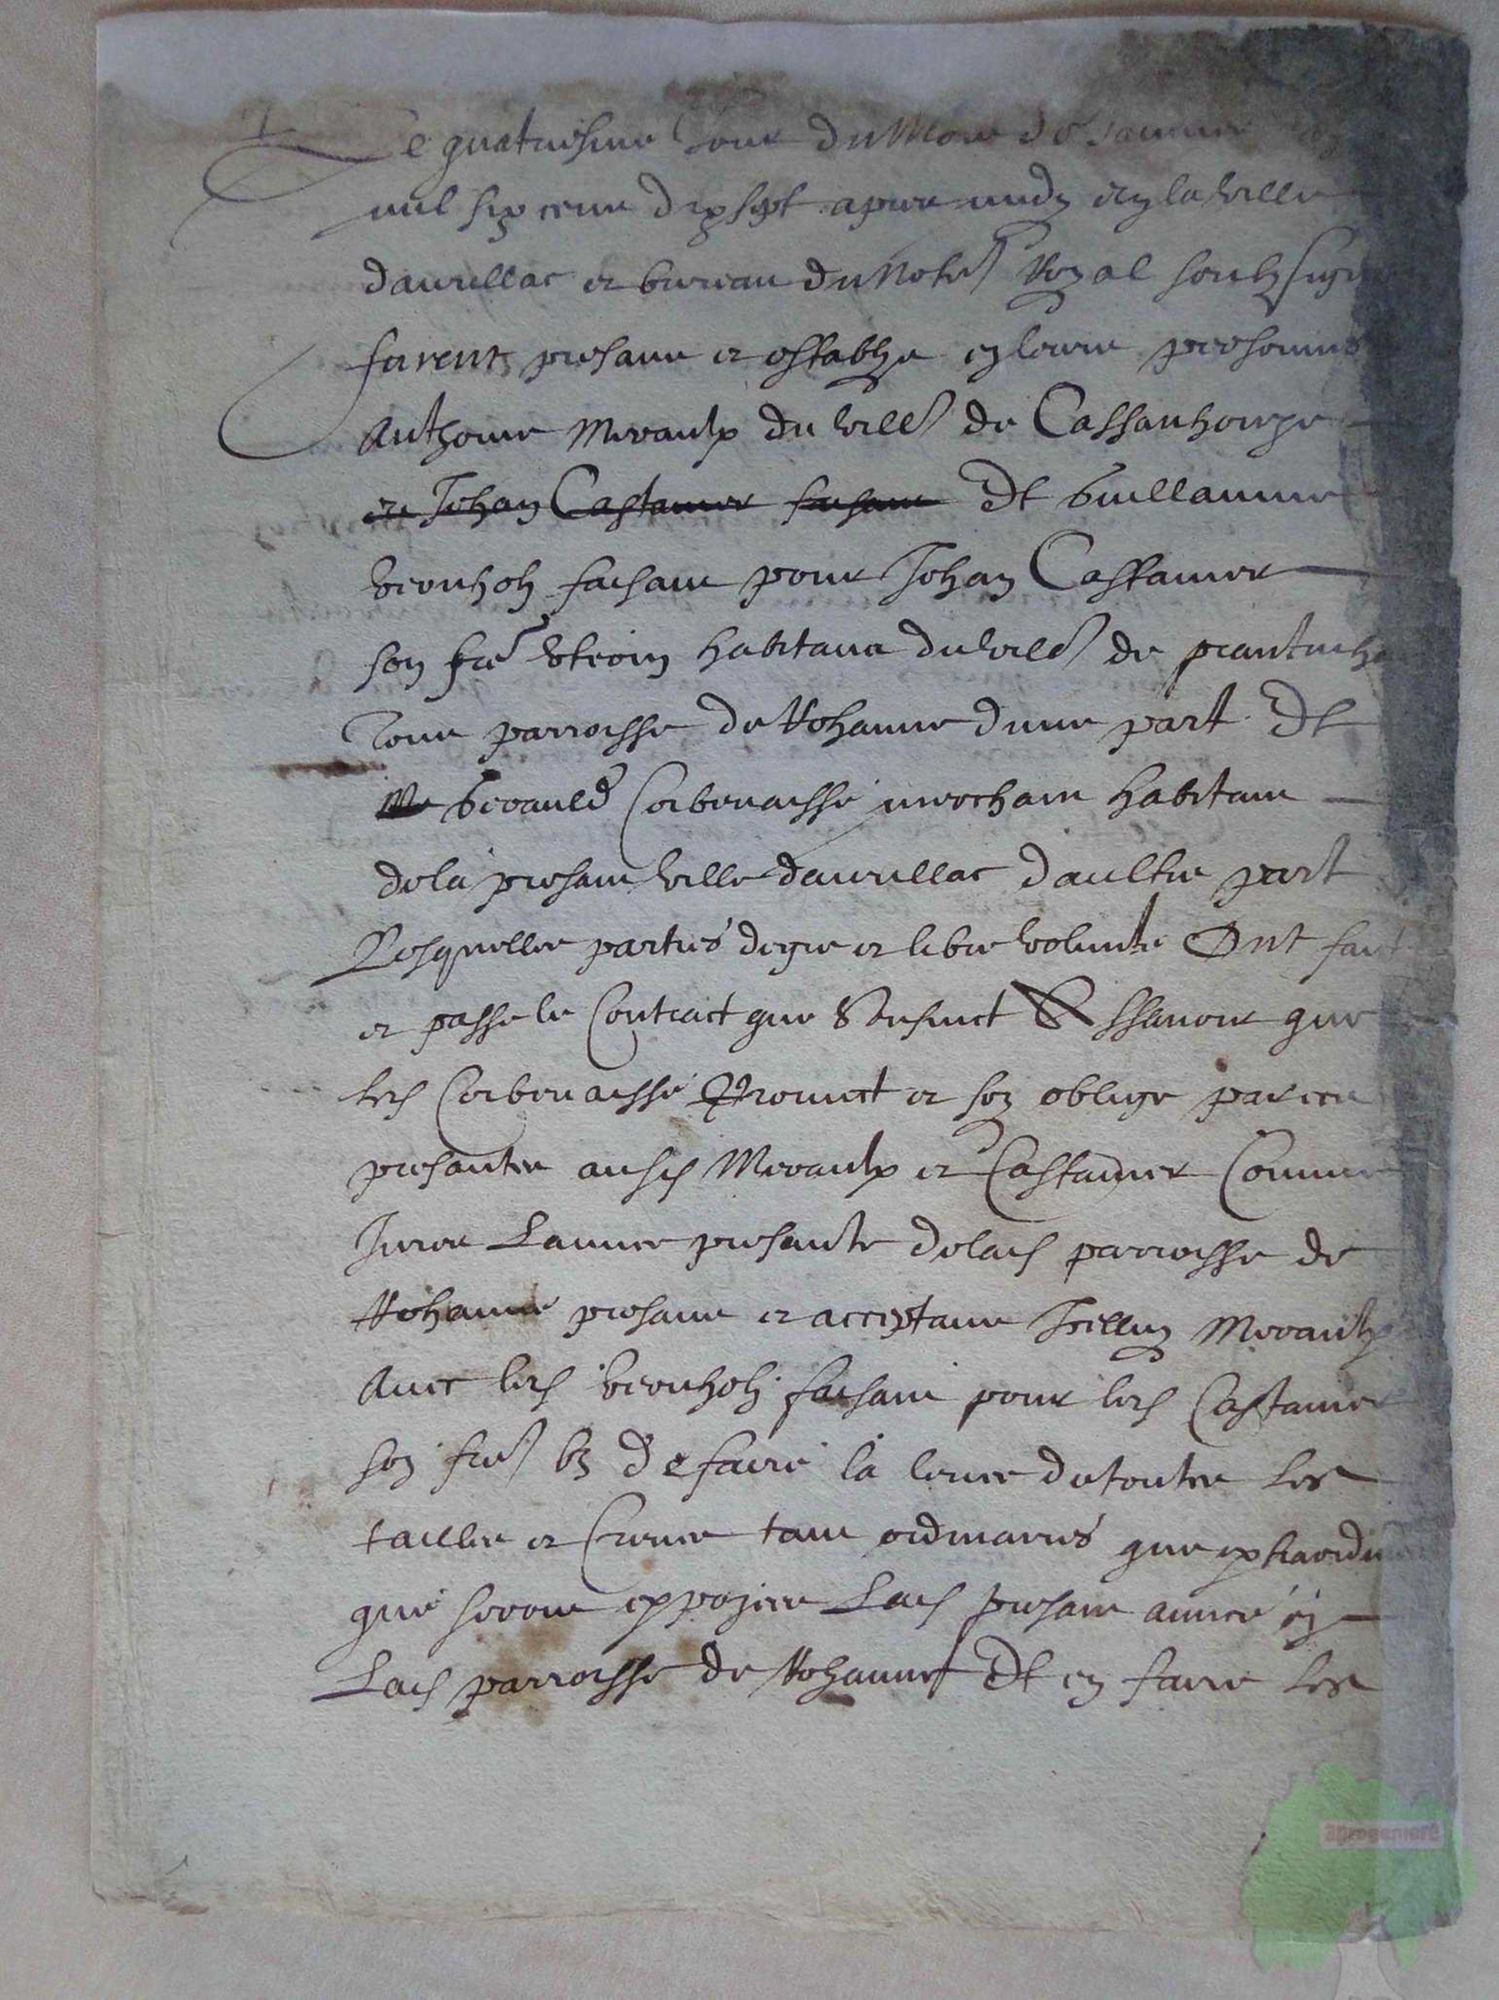 Le quatriesme Jour du Mois de Janvier
mil six cens dix sept apres midy en la ville
daurillac et bureau du Not.re Royal soubzsigne
furent presans et establys en leurs personnes
Anthoine Meraulx du vill.e de Cassanhouze
et Johan Castanier faisant Et Guillaume
Vernholh faisant pour Johan Castanier
son fre uterin habitans du vill.e de
Tous parroisse de Rohanne dune part Et
Me Gerauld Corbenaisse merchant habitant
de la presant ville daurillac daultre part
Lesquelles parties de gre et libre volunte Ont faict
et passe le Contract que Sensuict Assavoir que
led Corbenaisse Promect et son oblige par ces
presantes ausd Meraulx et Castanier Comme
Jures Lannee presante de lad parroisse de
Rohanne presans et acceptans Icelluy Meraulx
Avec led Vernholh faisant pour led Castanier
son fre de faire la levee de toutes les
tailles et Crues tant ordinaires que extraordin
que seront exposees Lad presant annee en
Lad parroisse de Rohanne Et en faire les
aprogemere